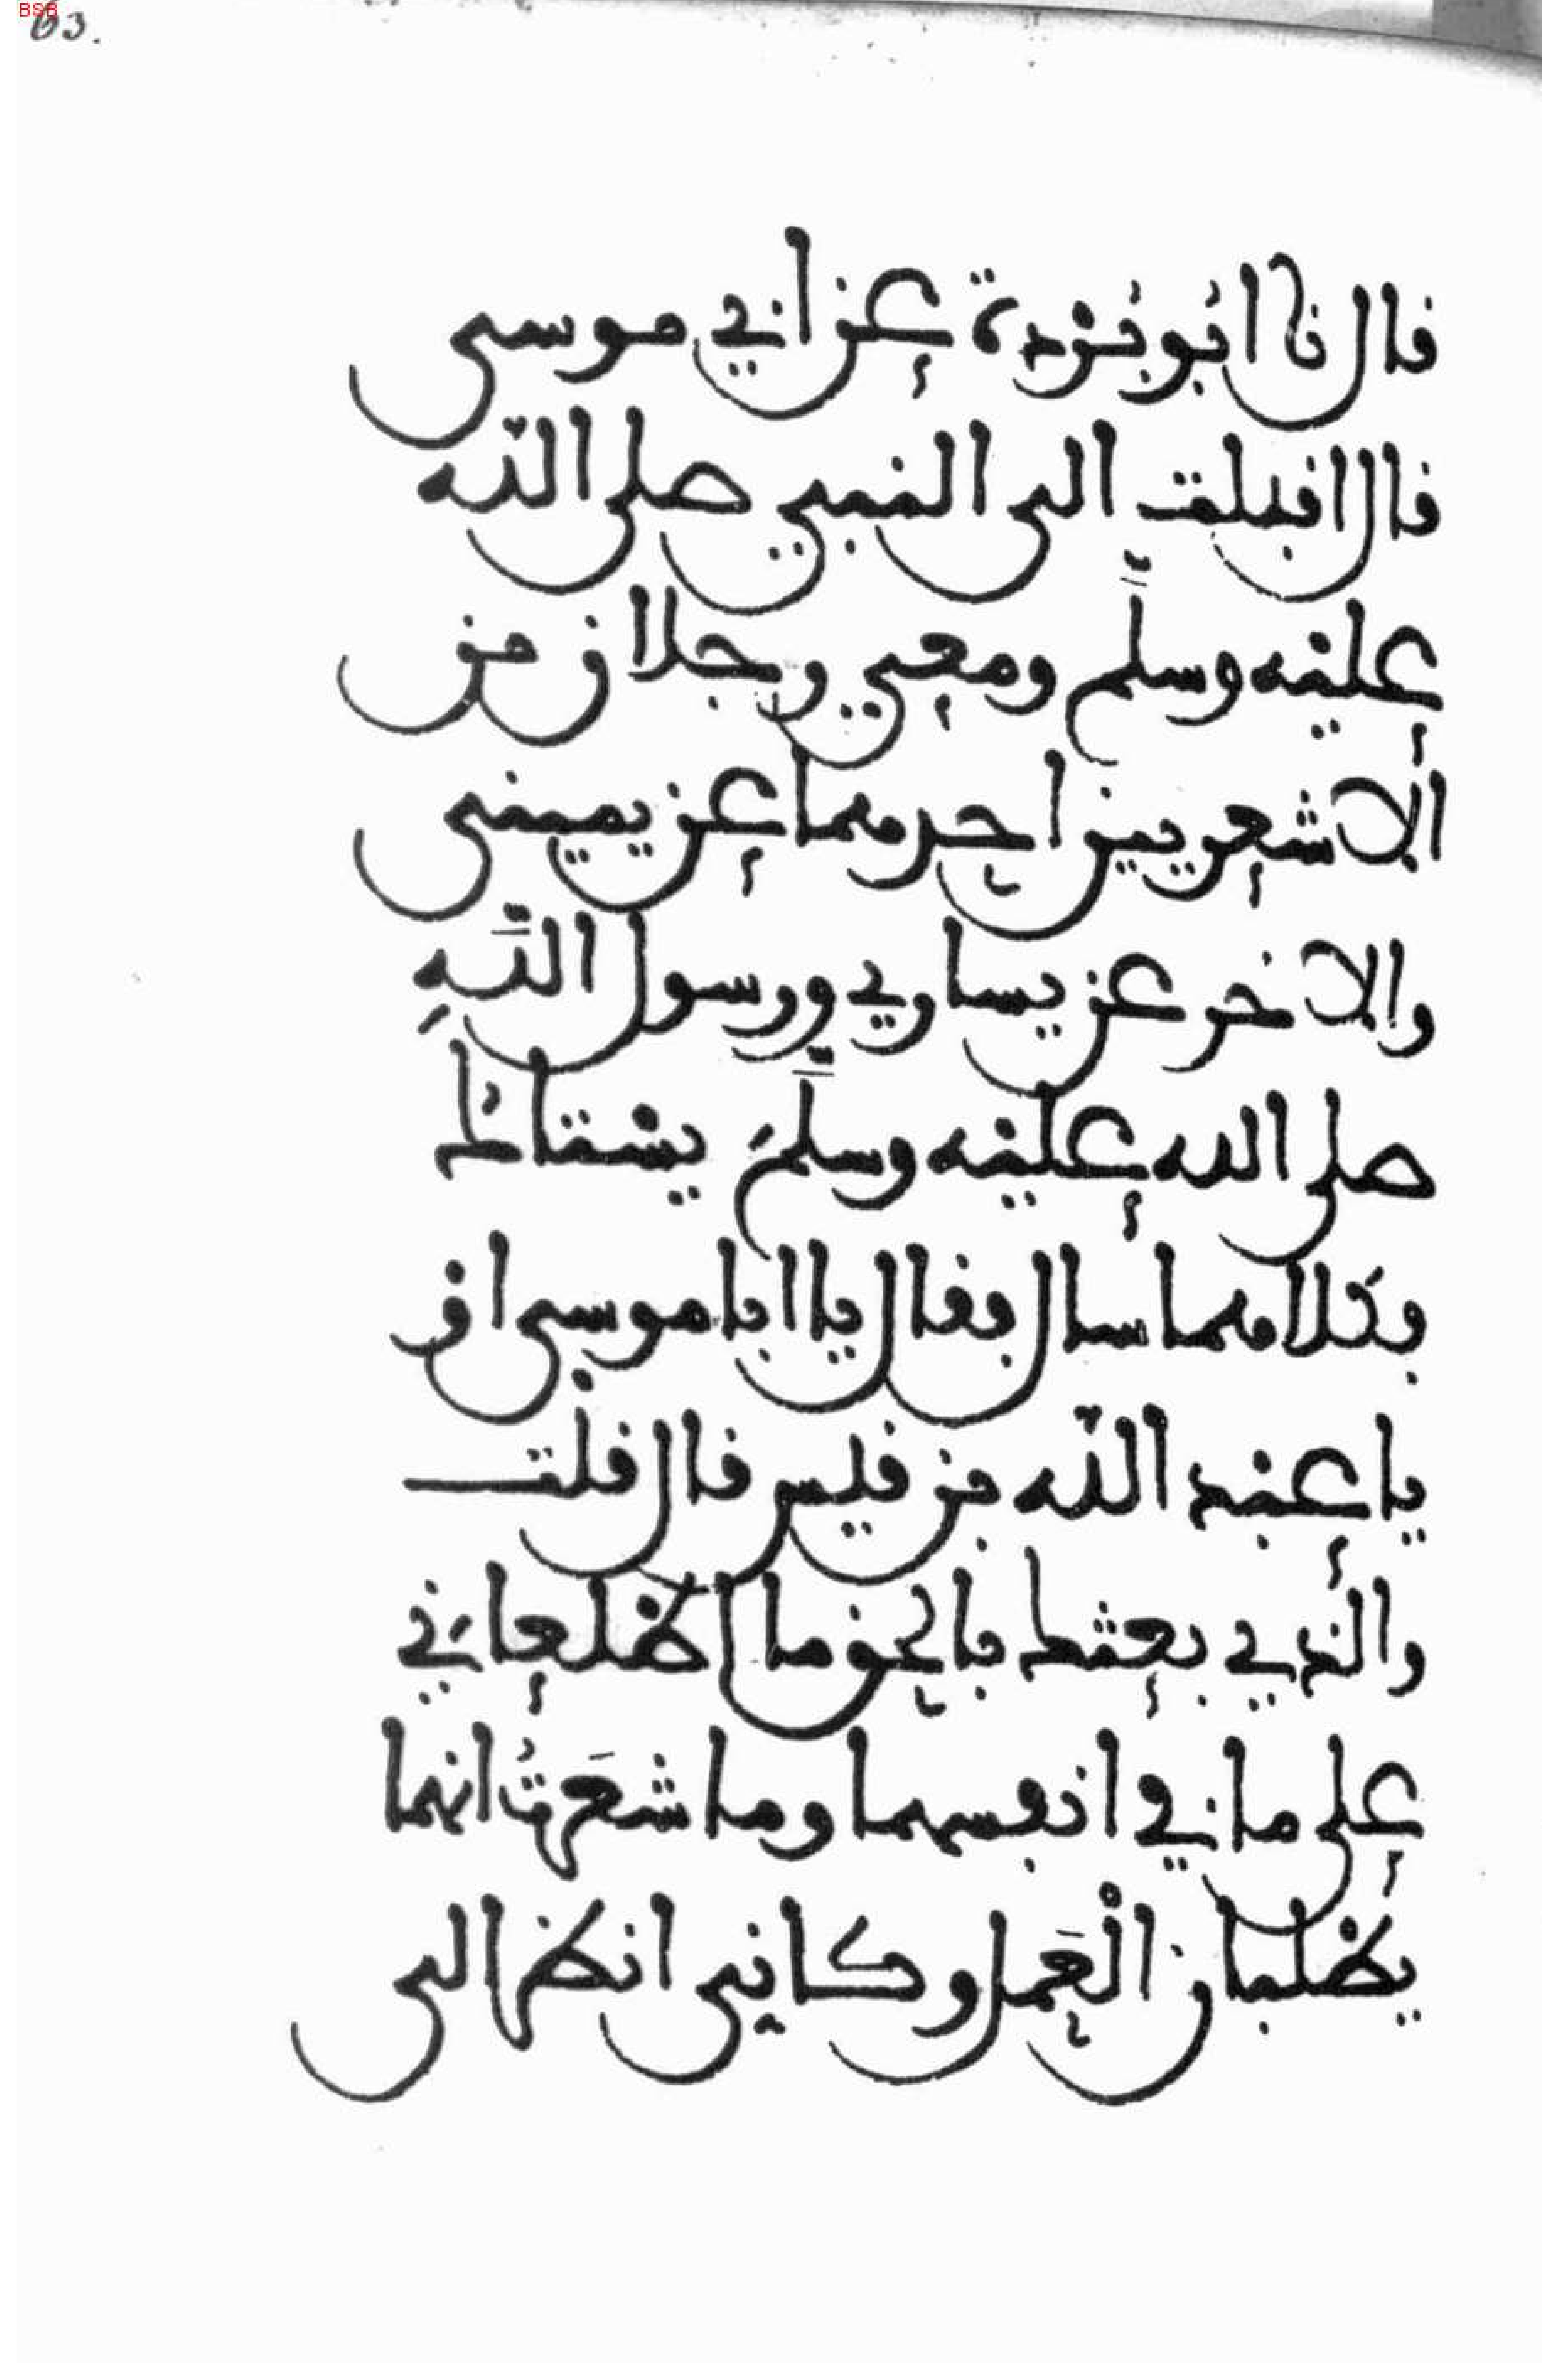 BSB
63.
قال نا ابُو بُرْدة عن ابي موسى
قال اقبلت الى النبي صلى اللّه
عليه وسلَّم ومعي رجلان من
الاشعريين احدهما عن يميني
والاخر عن يساري ورسول اللَّهِ
صلى الله عليه وسلمَ يستاك
فكلاهما سال فقال يا ابا موسى او
يا عبد اللّه بن قيس قال قلْت
والذي بعثك بالحق ما اطلعاني
على ما في انفسهما وما شعَرتُ انهما
يطلبان الْعَمل وكاني انظر الى